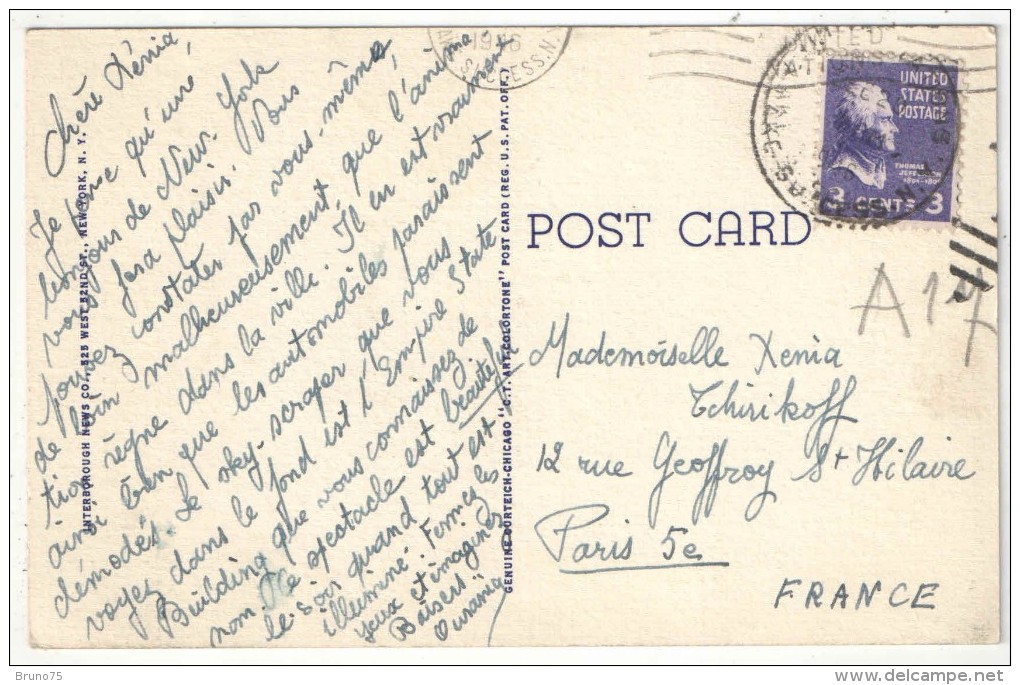 Chère Xénia,
Je pense qu'une
bonjour de New-York
vous fera plaisir. Vous
pouvez constater par vous-même,
de loin malheureusement, que l'anima
tion règne dans la ville. Il en est vraiment
ainsi bien que les automobiles paraissent
démodés. Le sky-scraper que vous
voyez dans le fond est l'Empire State
Building que vous connaissez de
nom. Le spectacle est beautiful
le soir quand tout est
illuminé. Fermez les
yeux et imaginez
Baisers
Ourania
INTERBOROUGH NEWS CO., 525 WEST 52ND ST., NEW YORK, N. Y.
GENUINE CURTEICH-CHICAGO "C.T. ART-COLORTONE" POST CARD (REG. U. S. PAT. OFF.)
1946
SUCCESS, N.Y.
UNITED
UNITED
STATES
POSTAGE
THOMAS
JEFFERSON
3 CENTS 3
POST CARD
A17
Mademoiselle Xenia
Tchirikoff
12 rue Geoffroy St Hilaire
Paris 5e
FRANCE
Bruno75
delcampe.net